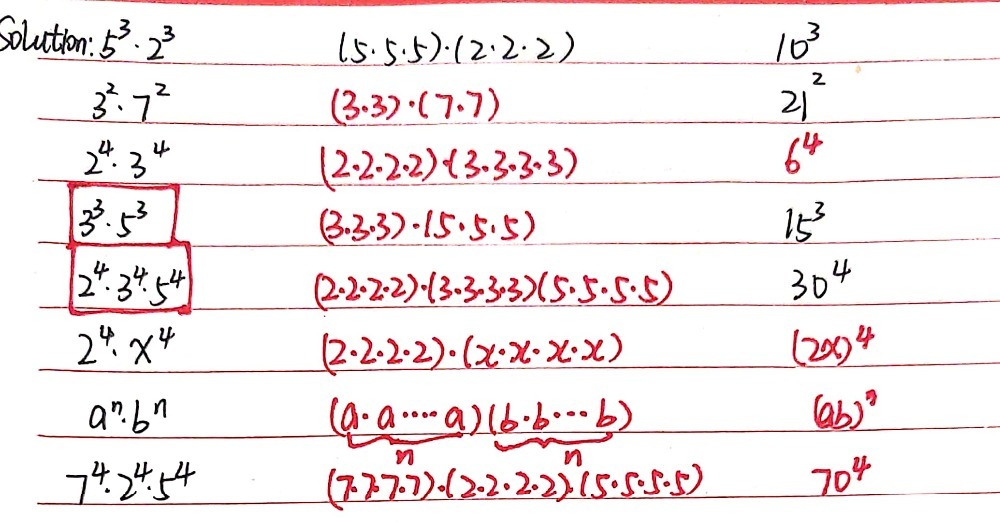 Solution: 5³·2³ (5·5·5)·(2·2·2) 10³
3²·7² (3·3)·(7·7) 21²
2⁴·3⁴ (2·2·2·2)·(3·3·3·3) 6⁴
3³·5³ (3·3·3)·(5·5·5) 15³
2⁴·3⁴·5⁴ (2·2·2·2)·(3·3·3·3)(5·5·5·5) 30⁴
2⁴·x⁴ (2·2·2·2)·(x·x·x·x) (2x)⁴
aⁿ·bⁿ (a·a····a)(b·b···b) (ab)ⁿ
n n
7⁴·2⁴·5⁴ (7·7·7·7)·(2·2·2·2)·(5·5·5·5) 70⁴